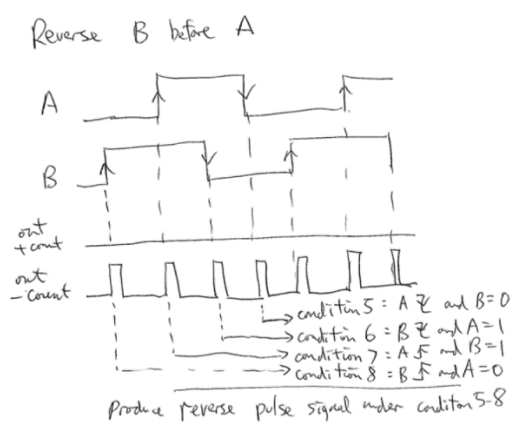 Reverse B before A
A
B
out
+count
out
-count
condition 5 : A ↓ and B=0
condition 6 : B ↓ and A=1
condition 7 : A ↑ and B=1
condition 8 : B ↑ and A=0
Produce reverse pulse signal under condition 5-8